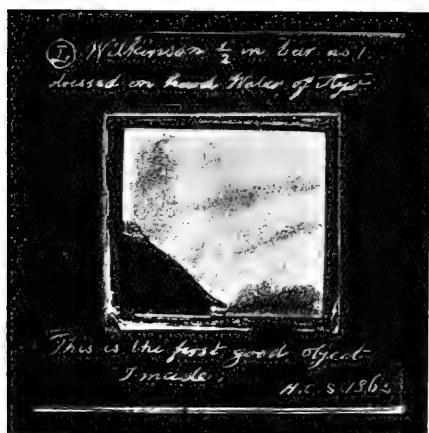 (I) Wilkinson 1/2 in bar no 1
dressed on hard Water of Ayr
This is the first good object
I made.
H.C.S. 1863